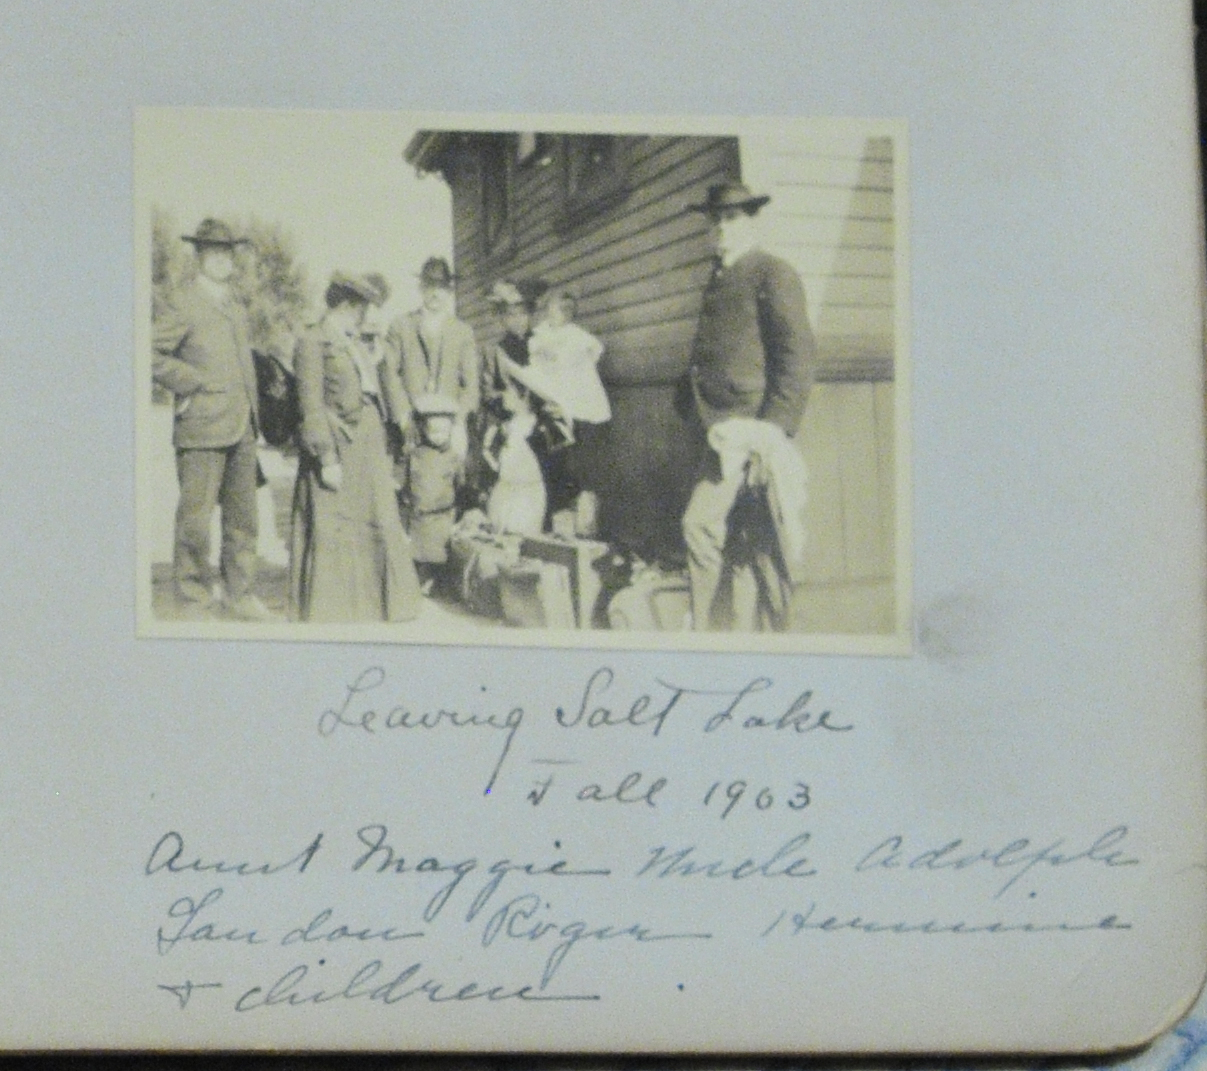 Leaving Salt Lake
Fall 1903
Aunt Maggie Uncle Adolph
Landon Roger Hermine
+ children